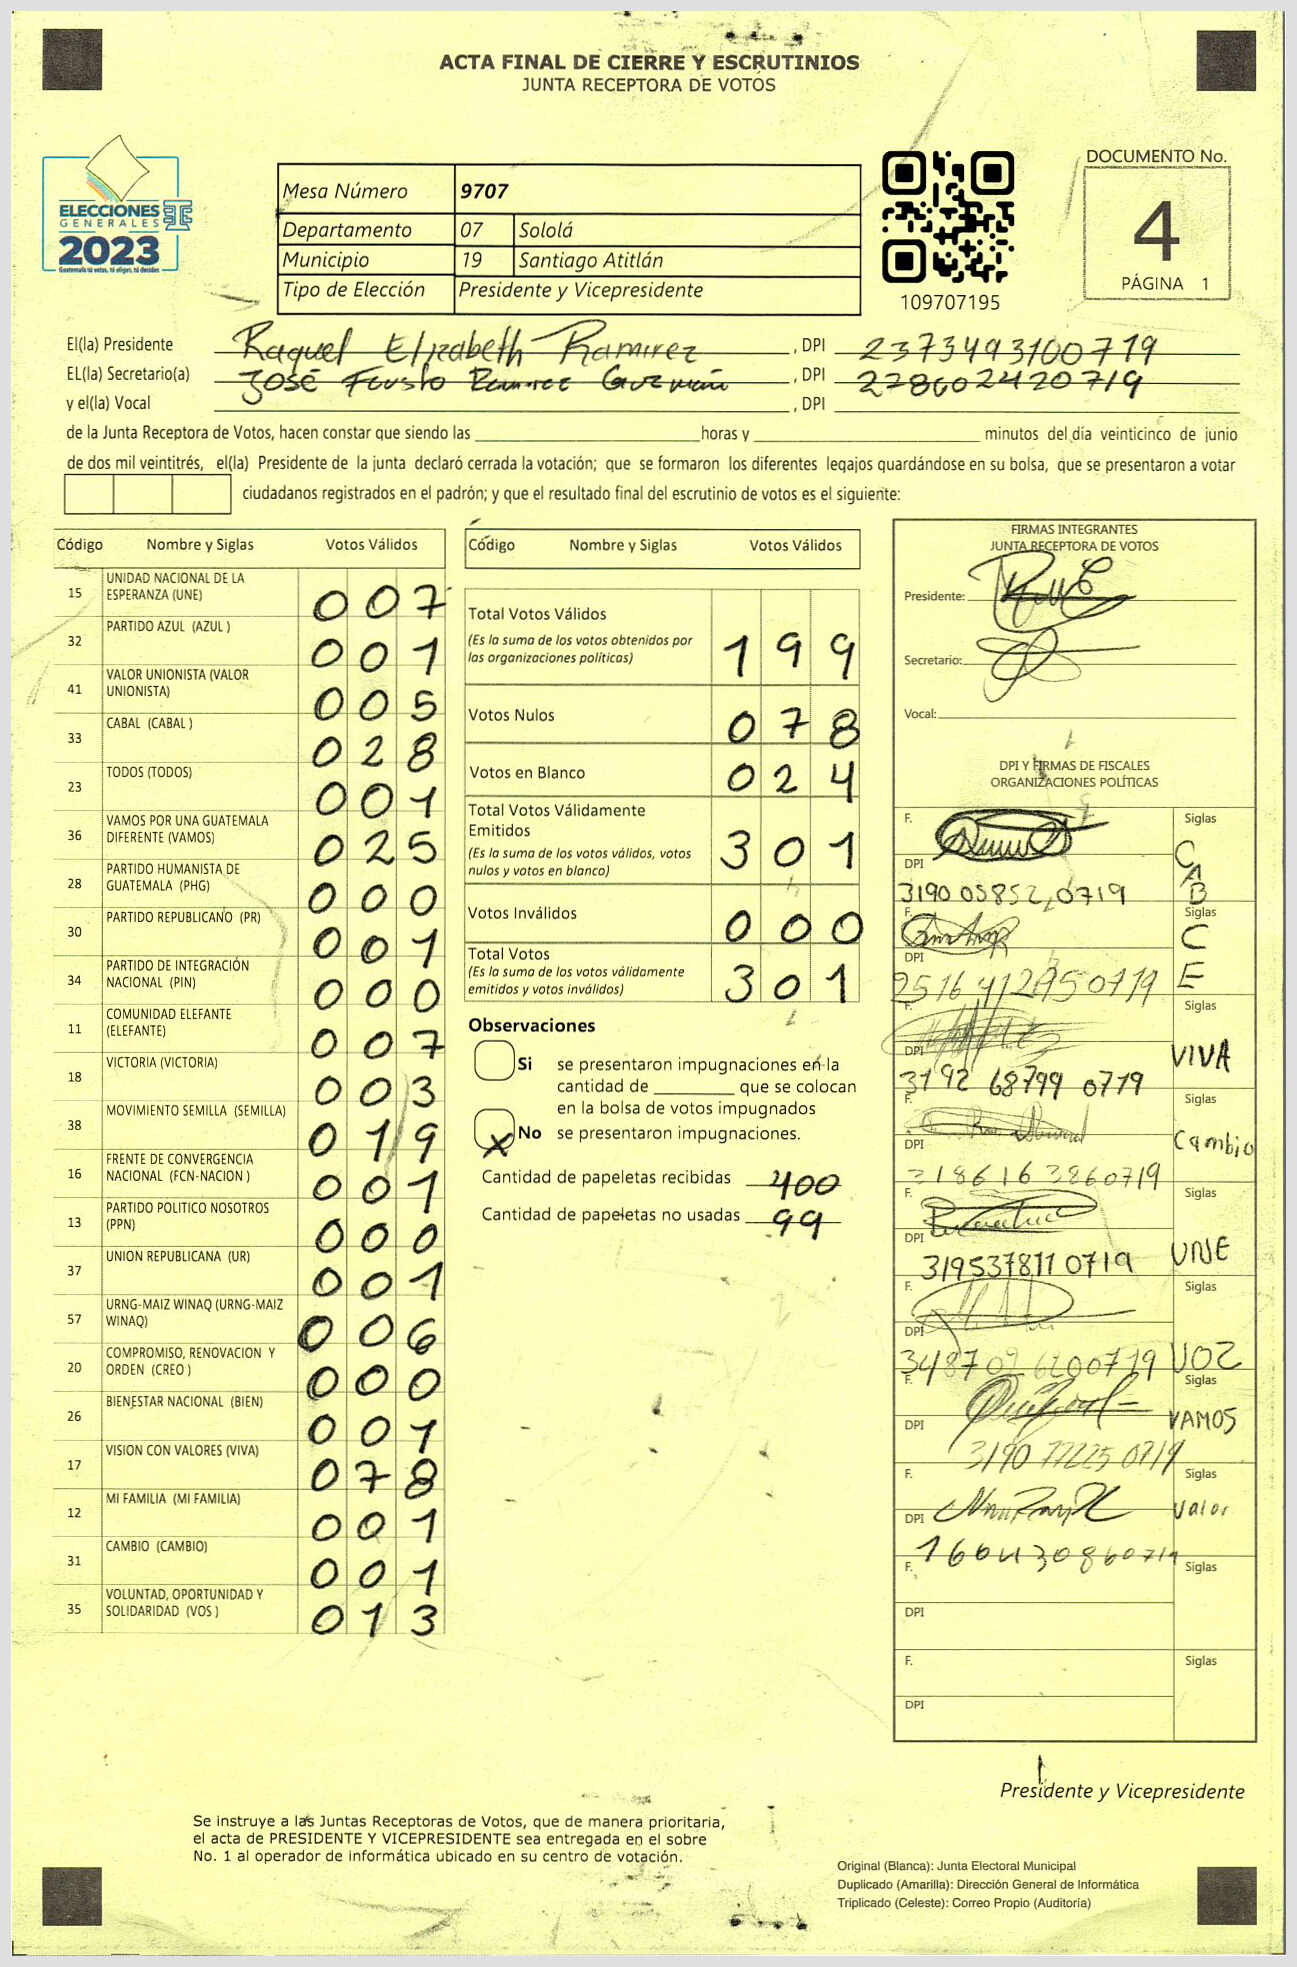 ACTA FINAL DE CIERRE Y ESCRUTINIOS
JUNTA RECEPTORA DE VOTOS
ELECCIONES
GENERALES
2023
Guatemala tú votas, tú eliges, tú decides
Mesa Número 9707
Departamento 07 Sololá
Municipio 19 Santiago Atitlán
Tipo de Elección Presidente y Vicepresidente
109707195
DOCUMENTO No.
4
PÁGINA 1
El(la) Presidente Raquel Elizabeth Ramirez , DPI 2373493100719
EL(la) Secretario(a) José Fausto Ramirez Guzmán , DPI 278602420719
y el(la) Vocal , DPI
de la Junta Receptora de Votos, hacen constar que siendo las horas y minutos del día veinticinco de junio
de dos mil veintitrés, el(la) Presidente de la junta declaró cerrada la votación; que se formaron los diferentes legajos guardándose en su bolsa, que se presentaron a votar
ciudadanos registrados en el padrón; y que el resultado final del escrutinio de votos es el siguiente:
Código Nombre y Siglas Votos Válidos
15 UNIDAD NACIONAL DE LA ESPERANZA (UNE) 007
32 PARTIDO AZUL (AZUL ) 001
41 VALOR UNIONISTA (VALOR UNIONISTA) 005
33 CABAL (CABAL ) 028
23 TODOS (TODOS) 001
36 VAMOS POR UNA GUATEMALA DIFERENTE (VAMOS) 025
28 PARTIDO HUMANISTA DE GUATEMALA (PHG) 000
30 PARTIDO REPUBLICANO (PR) 001
34 PARTIDO DE INTEGRACIÓN NACIONAL (PIN) 000
11 COMUNIDAD ELEFANTE (ELEFANTE) 007
18 VICTORIA (VICTORIA) 003
38 MOVIMIENTO SEMILLA (SEMILLA) 019
16 FRENTE DE CONVERGENCIA NACIONAL (FCN-NACION ) 001
13 PARTIDO POLITICO NOSOTROS (PPN) 000
37 UNION REPUBLICANA (UR) 001
57 URNG-MAIZ WINAQ (URNG-MAIZ WINAQ) 006
20 COMPROMISO, RENOVACION Y ORDEN (CREO ) 000
26 BIENESTAR NACIONAL (BIEN) 001
17 VISION CON VALORES (VIVA) 078
12 MI FAMILIA (MI FAMILIA) 001
31 CAMBIO (CAMBIO) 001
35 VOLUNTAD, OPORTUNIDAD Y SOLIDARIDAD (VOS ) 013
Código Nombre y Siglas Votos Válidos
Total Votos Válidos 199
(Es la suma de los votos obtenidos por
las organizaciones políticas)
Votos Nulos 078
Votos en Blanco 024
Total Votos Válidamente
Emitidos 301
(Es la suma de los votos válidos, votos
nulos y votos en blanco)
Votos Inválidos 000
Total Votos 301
(Es la suma de los votos válidamente
emitidos y votos inválidos)
Observaciones
Si se presentaron impugnaciones en la
cantidad de que se colocan
en la bolsa de votos impugnados
X No se presentaron impugnaciones.
Cantidad de papeletas recibidas 400
Cantidad de papeletas no usadas 99
FIRMAS INTEGRANTES
JUNTA RECEPTORA DE VOTOS
Presidente:
Secretario:
Vocal:
DPI Y FIRMAS DE FISCALES
ORGANIZACIONES POLÍTICAS
F. Siglas
DPI CAB
3190 05852 0719
F. Siglas
DPI CE
F. Siglas
DPI VIVA
3192 68799 0719
F. Siglas
DPI Cambio
3186163860719
F. Siglas
DPI UNE
3195378110719
F.
DPI VOZ
F. Siglas
DPI VAMOS
3190 77225 0719
F. Siglas
DPI Valor
1604130860719
F. Siglas
DPI
F. Siglas
DPI
Presidente y Vicepresidente
Se instruye a las Juntas Receptoras de Votos, que de manera prioritaria,
el acta de PRESIDENTE Y VICEPRESIDENTE sea entregada en el sobre
No. 1 al operador de informática ubicado en su centro de votación.
Original (Blanca): Junta Electoral Municipal
Duplicado (Amarilla): Dirección General de Informática
Triplicado (Celeste): Correo Propio (Auditoría)